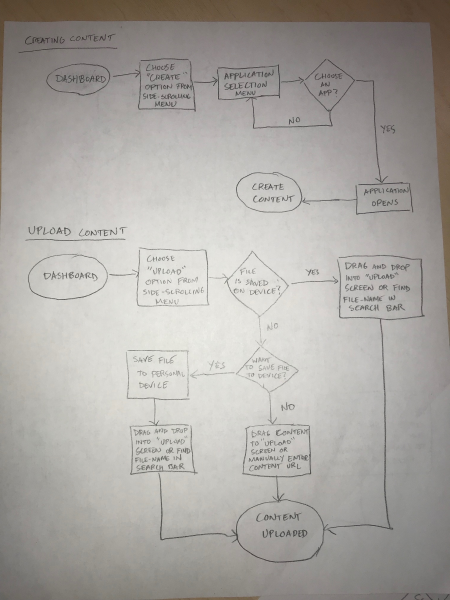 CREATING CONTENT
DASHBOARD
CHOOSE
"CREATE"
OPTION FROM
SIDE-SCROLLING
MENU
APPLICATION
SELECTION
MENU
CHOOSE
AN
APP?
NO
YES
APPLICATION
OPENS
CREATE
CONTENT
UPLOAD CONTENT
DASHBOARD
CHOOSE
"UPLOAD"
OPTION FROM
SIDE-SCROLLING
MENU
FILE
IS SAVED
ON DEVICE?
YES
DRAG AND DROP
INTO "UPLOAD"
SCREEN OR FIND
FILE-NAME IN
SEARCH BAR
NO
WANT
TO SAVE FILE
TO DEVICE?
YES
SAVE FILE
TO PERSONAL
DEVICE
DRAG AND DROP
INTO "UPLOAD"
SCREEN OR FIND
FILE-NAME IN
SEARCH BAR
NO
DRAG CONTENT
TO "UPLOAD"
SCREEN OR
MANUALLY ENTER
CONTENT URL
CONTENT
UPLOADED